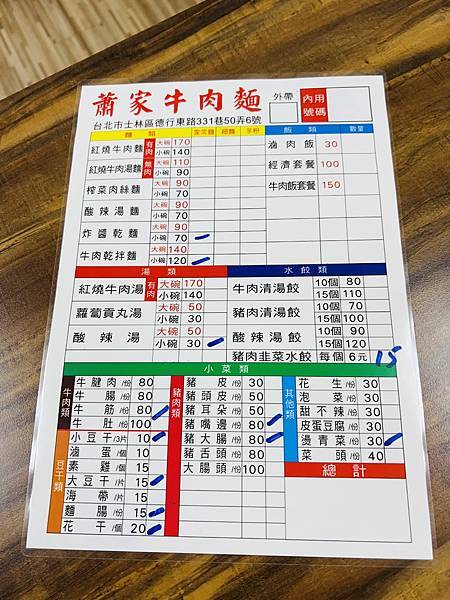 蕭家牛肉麵
外帶 內用號碼
台北市士林區德行東路331巷50弄6號
麵類 家常麵 細麵 冬粉 飯類 數量
紅燒牛肉麵 有肉 大碗170 滷肉飯 30
小碗140
紅燒牛肉湯麵 無肉 大碗110 經濟套餐 100
小碗 90
榨菜肉絲麵 大碗 90 牛肉飯套餐 150
小碗 70
酸辣湯麵 大碗 90
小碗 70
炸醬乾麵 大碗 90
小碗 70
牛肉乾拌麵 大碗140
小碗120
湯類 水餃類
紅燒牛肉湯 有肉 大碗170 牛肉清湯餃 10個 80
小碗140 15個110
蘿蔔貢丸湯 大碗 50 豬肉清湯餃 10個 70
小碗 30 15個100
酸辣湯 大碗 50 酸辣湯餃 10個 90
小碗 30 15個120
豬肉韭菜水餃 每個 6元 15
小菜類
牛肉類 牛腱肉/份 80 豬肉類 豬皮/份 30 其他類 花生/份 30
牛腸/份 80 豬頭皮/份 50 泡菜/份 30
牛筋/份 80 豬耳朵/份 50 甜不辣/份 30
牛肚/份 100 豬嘴邊/份 80 皮蛋豆腐/份 30
豆干類 小豆干/3片 10 豬大腸/份 80 燙青菜/份 30
滷蛋/個 10 豬舌頭/份 80 菜頭/份 40
素雞/個 15 大腸頭/份 100 總計
大豆干/片 15
海帶/片 15
麵腸/份 15
花干/個 20